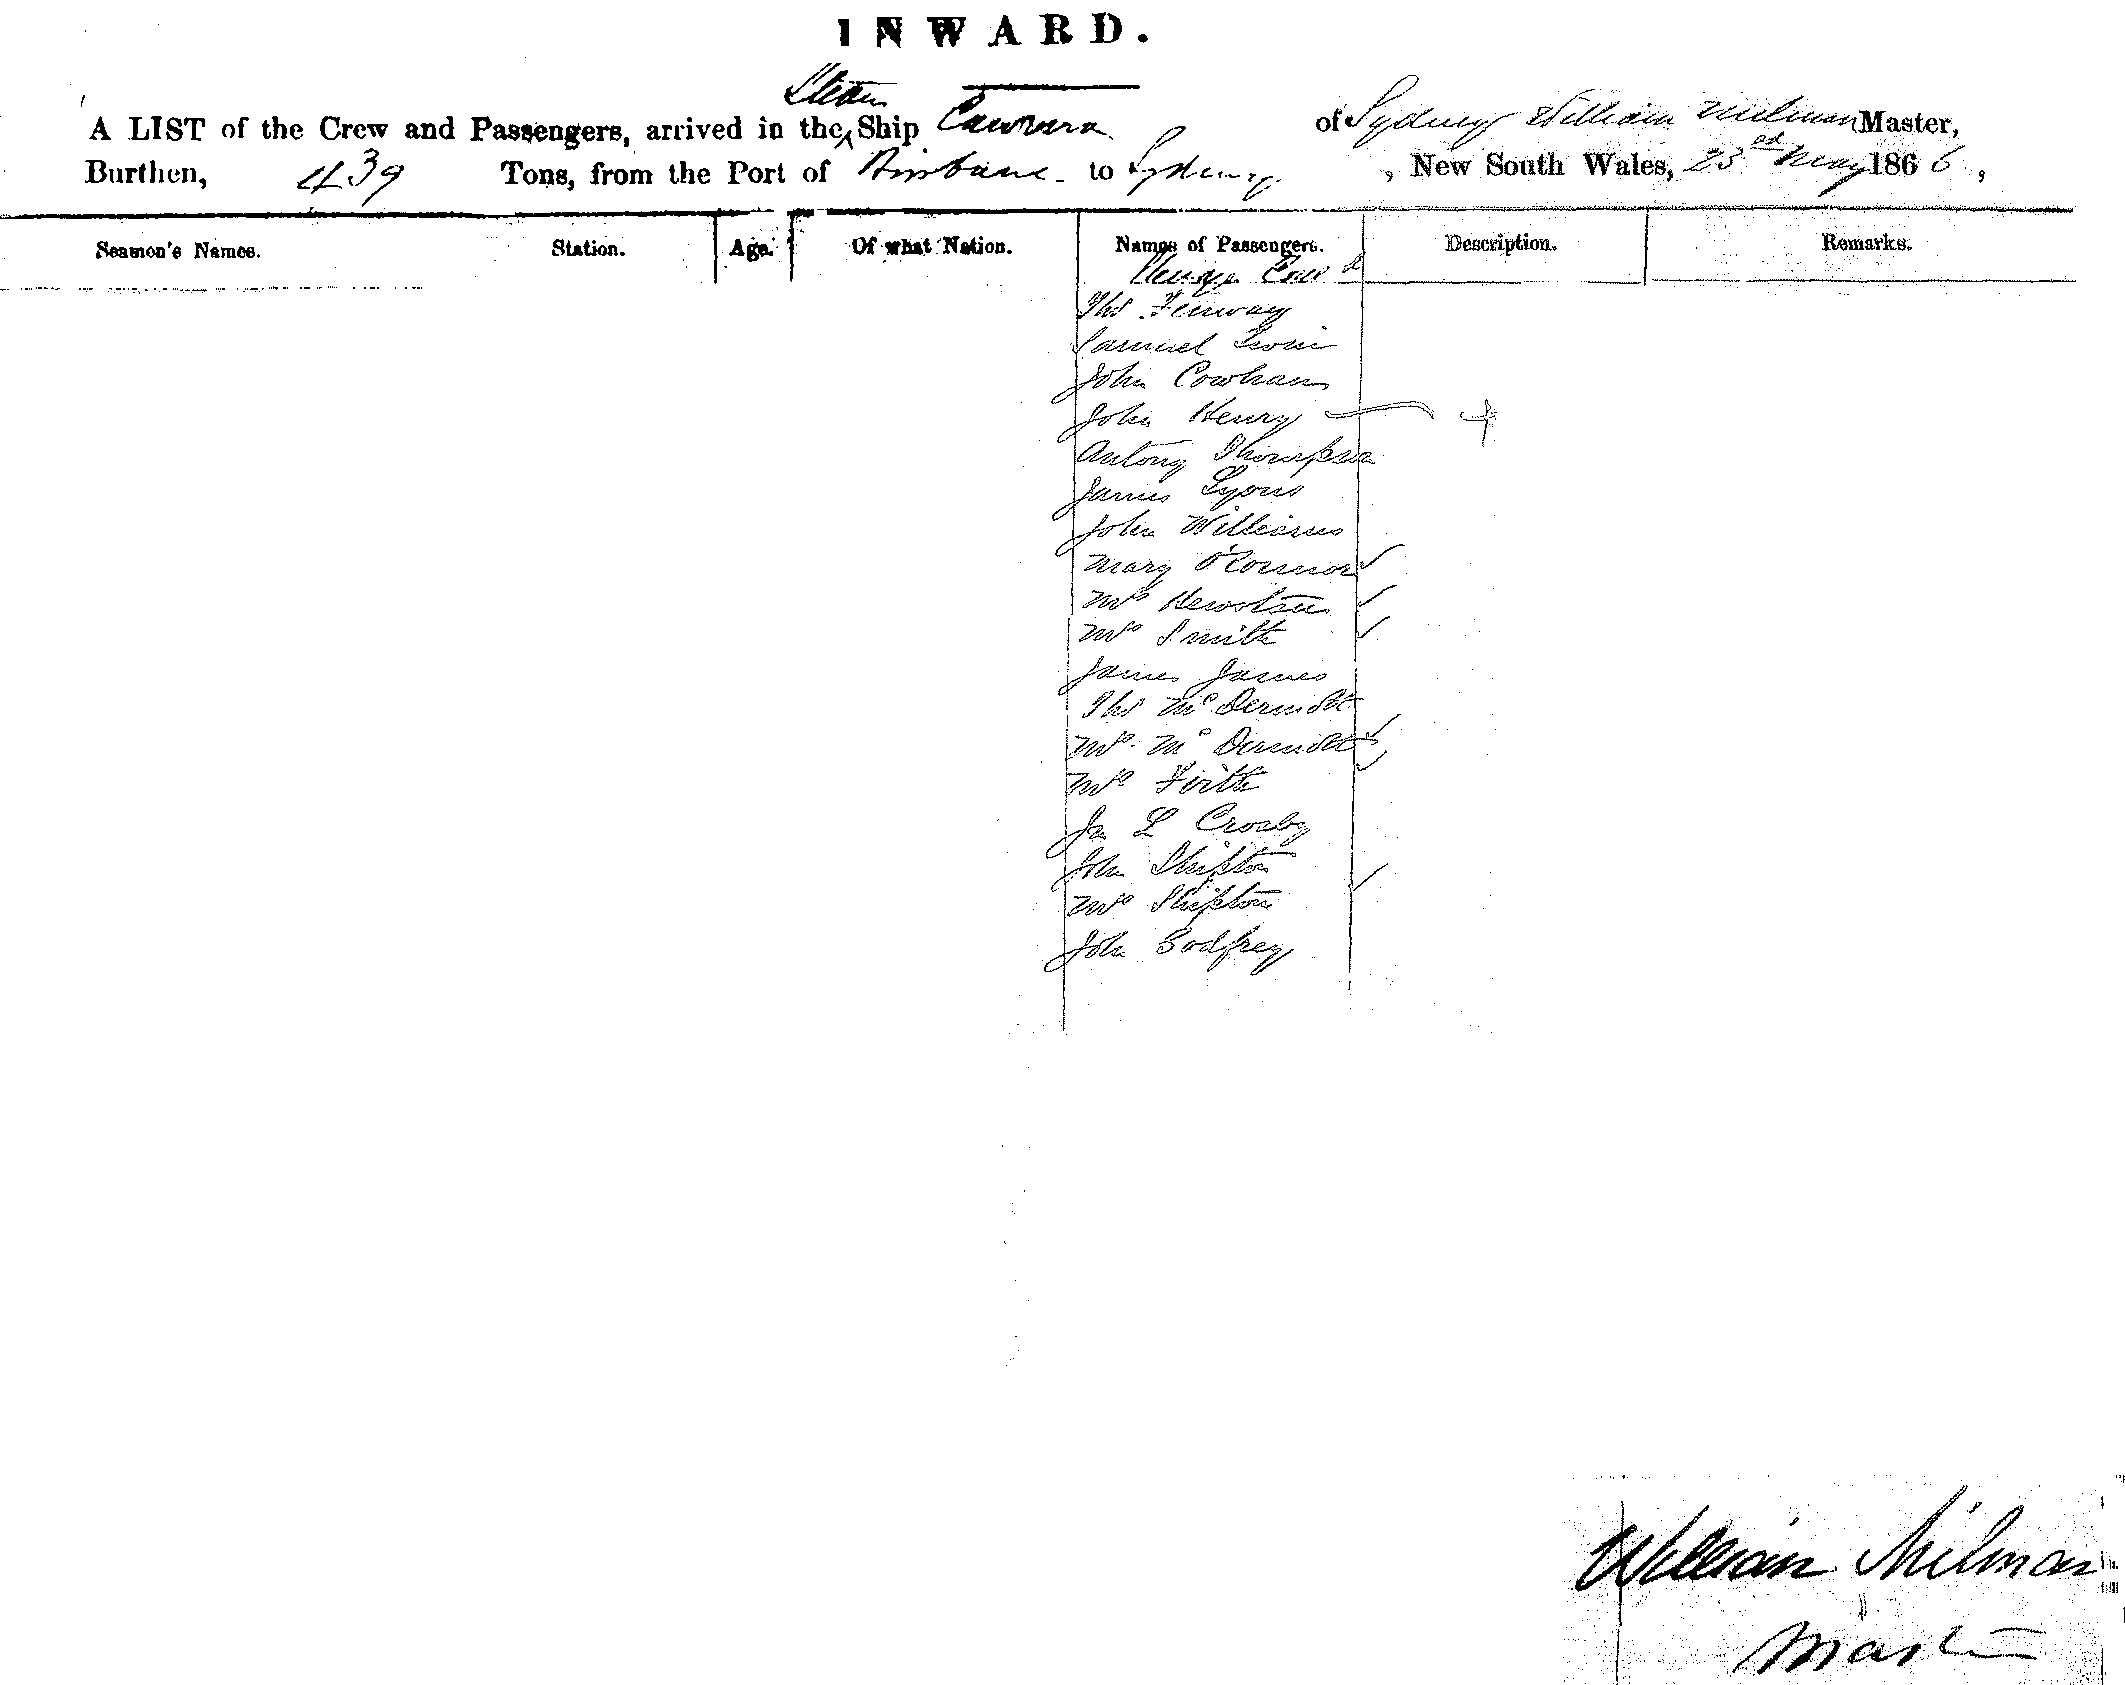 INWARD.
Steam
A LIST of the Crew and Passengers, arrived in the Ship Cawarra of Sydney William Milman Master,
Burthen, 439 Tons, from the Port of Brisbane to Sydney, New South Wales, 23rd May 1866,
Seamen's Names. Station. Age. Of what Nation. Names of Passengers. Description. Remarks.
Ths Fenway
Samuel Irwin
John Cowhan
John Henry
Antony Thompson
James Lyons
John Williams
Mary O'Connor
Mrs
Mrs Smith
James James
Ths McDermott
Mrs McDermott
Mrs Firth
Jas L Crosby
John Shipton
Mrs Shipton
John Godfrey
William Milman
Master